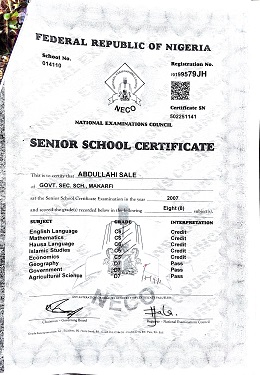 FEDERAL REPUBLIC OF NIGERIA
School No.
014110
Registration No.
NECO
Certificate SN
502251141
NATIONAL EXAMINATIONS COUNCIL
SENIOR SCHOOL CERTIFICATE
This is to certify that ABDULLAHI SALE
of GOVT. SEC. SCH., MAKARFI
sat the Senior School Certificate Examination in the year 2007
and scored the grade(s) recorded below in the following Eight (8) subject(s).
SUBJECT GRADE INTERPRETATION
English Language C6 Credit
Mathematics Credit
Hausa Language Credit
Islamic Studies Credit
Economics C5 Credit
Geography D7 Pass
Government Pass
Agricultural Science D7 Pass
NECO
Chairman - Governing Board
Registrar - National Examinations Council